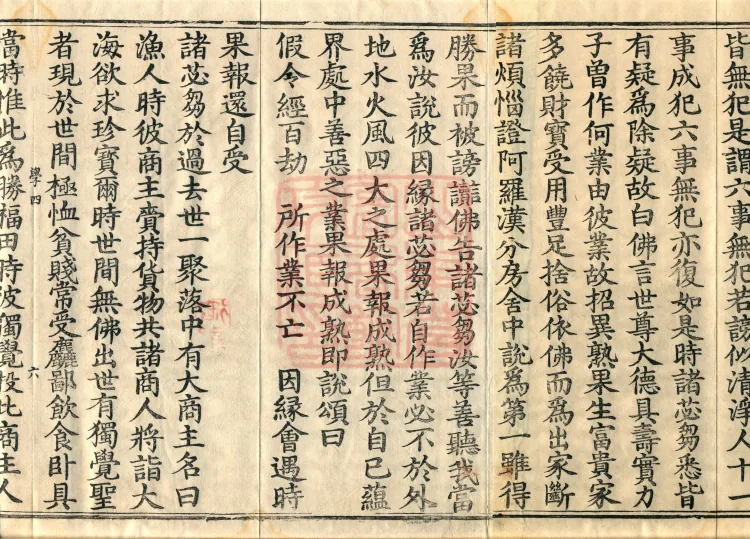 皆無犯是謂六事無犯若謗似清淨人十一
事成犯六事無犯亦復如是時諸苾芻悉皆
有疑為除疑故白佛言世尊大德具壽實力
子曾作何業由彼業故招異熟果生富貴家
多饒財寶受用豐足捨俗依佛而為出家斷
諸煩惱證阿羅漢分房舍中說為第一雖得
勝果而被謗讟佛告諸苾芻汝等善聽我當
為汝說彼因緣諸苾芻若自作業必不於外
地水火風四大之處果報成熟但於自己蘊
界處中善惡之業果報成熟即說頌曰
假令經百劫 所作業不亡 因緣會遇時
果報還自受
諸苾芻於過去世一聚落中有大商主名曰
漁人時彼商主賷持貨物共諸商人將詣大
海欲求珍寶爾時世間無佛出世有獨覺聖
者現於世間極恤貧賤常受麤鄙飲食臥具
學四 六
當時惟此為勝福田時彼獨覺投此商主人